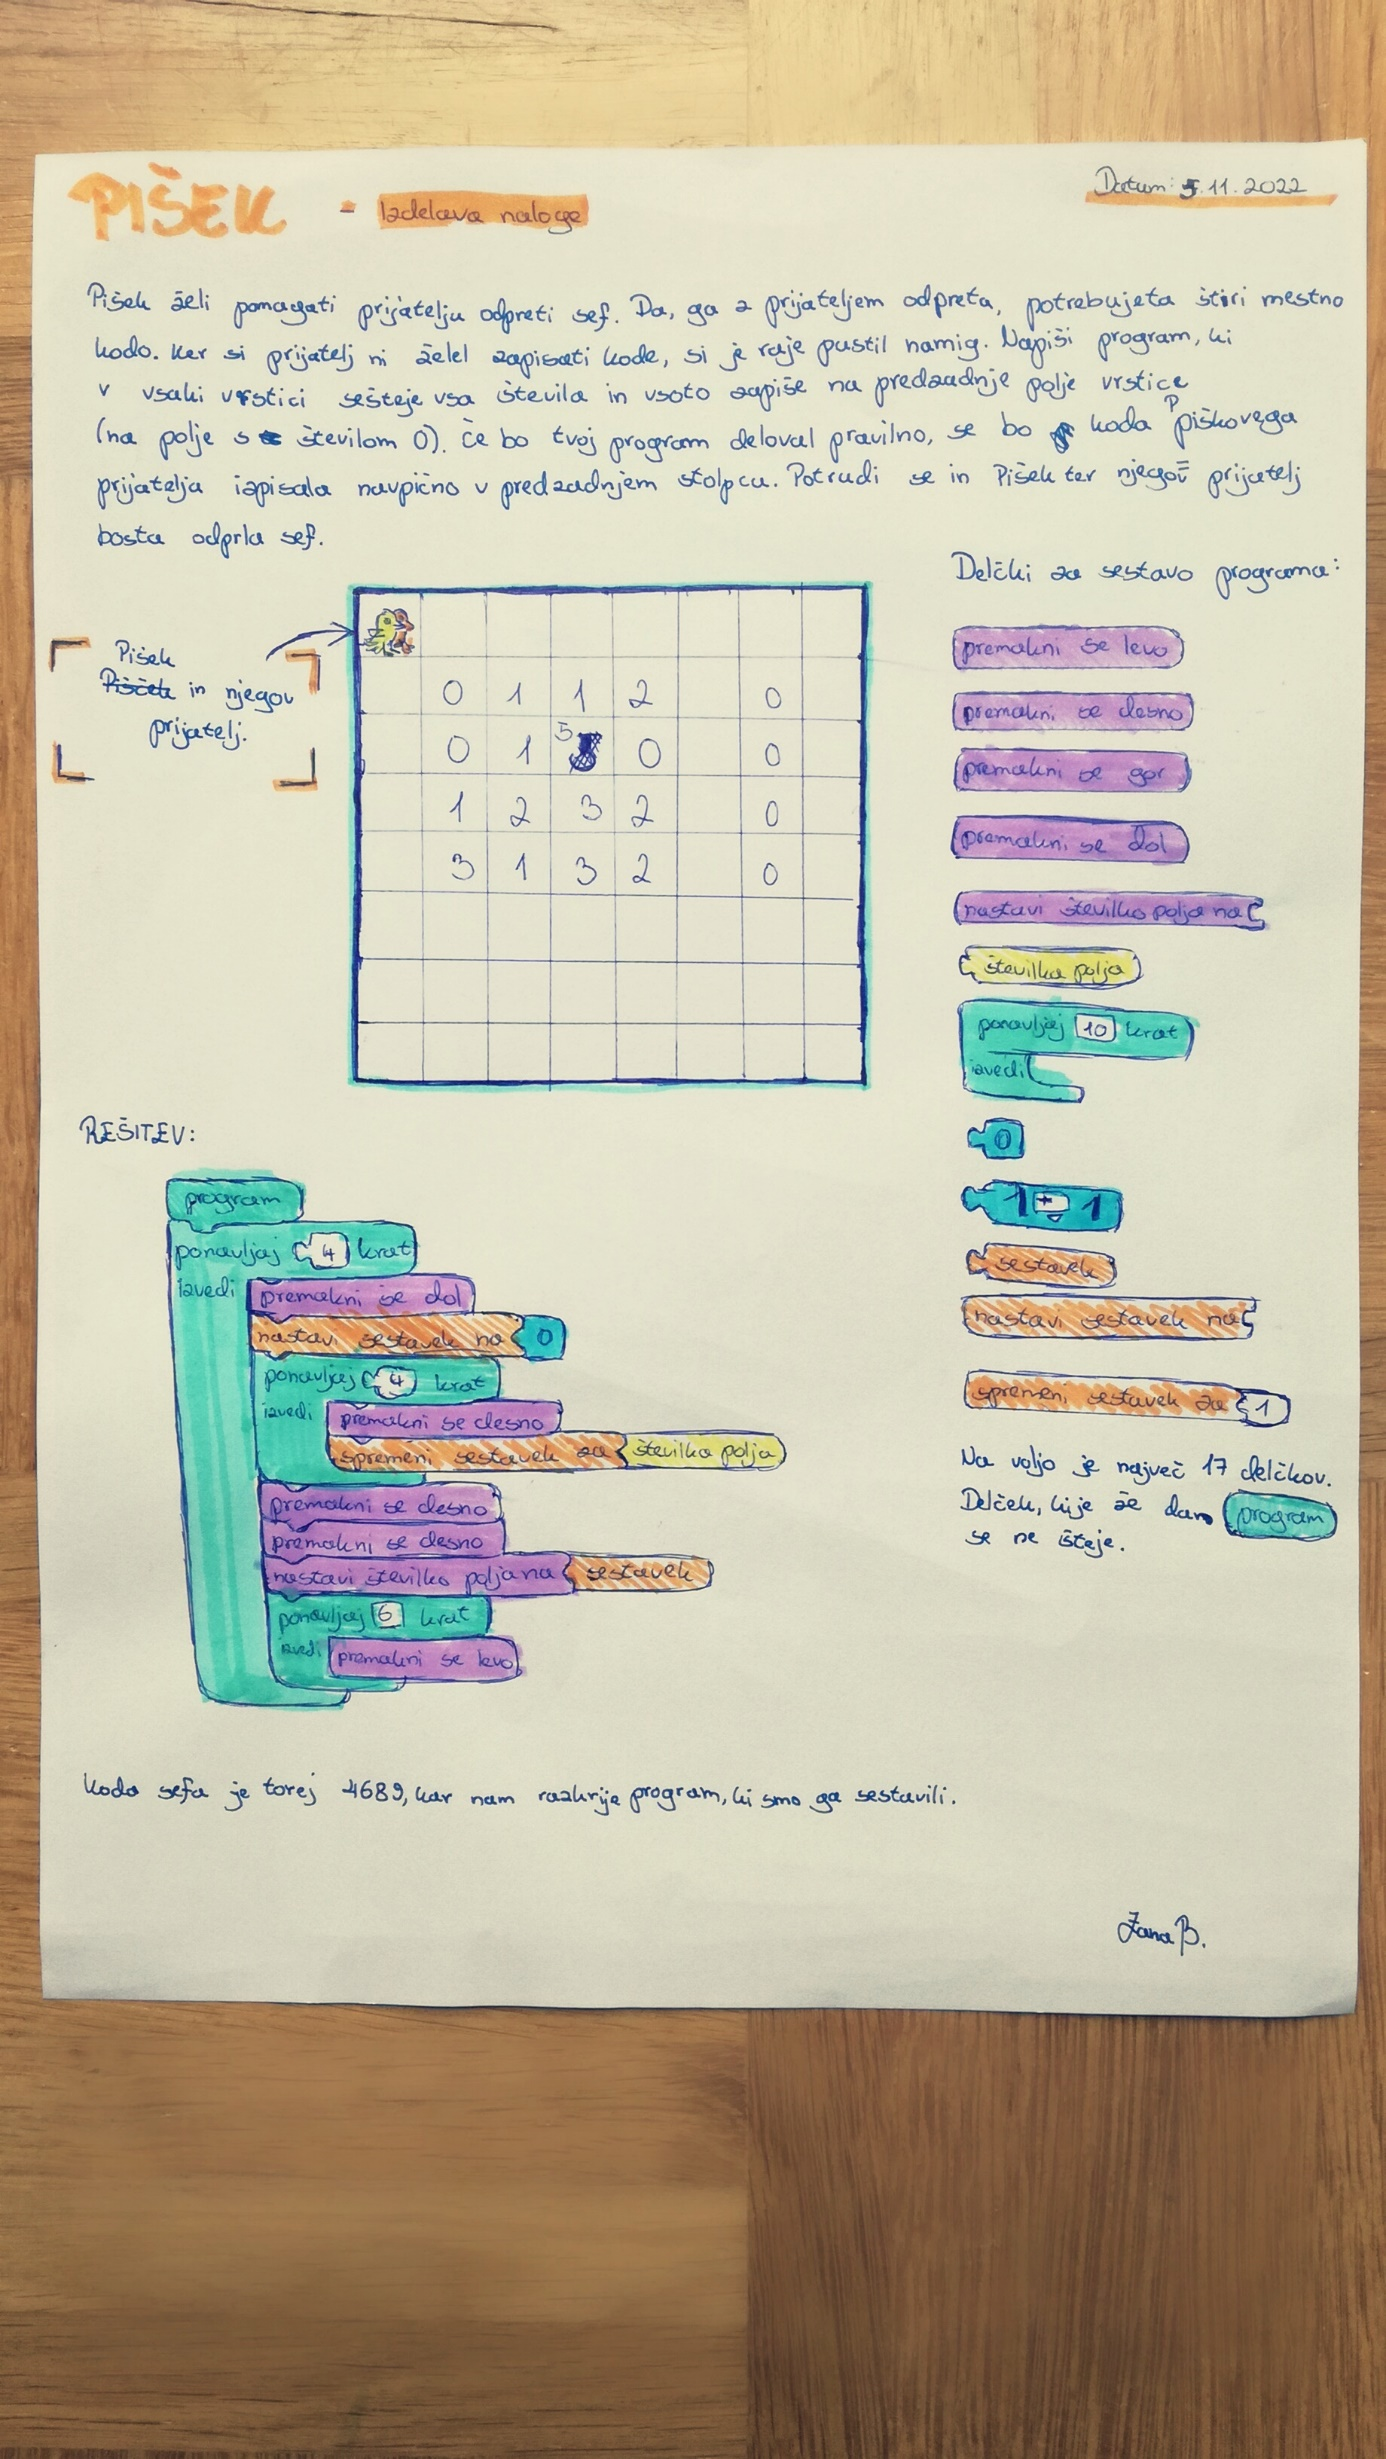 PIŠEK - Izdelava naloge
Datum: 5.11.2022
Pišek želi pomagati prijatelju odpreti sef. Da, ga z prijateljem odpreta, potrebujeta štiri mestno
kodo. Ker si prijatelj ni želel zapisati kode, si je raje pustil namig. Napiši program, ki
v vsaki vrstici sešteje vsa števila in vsoto zapiše na predzadnje polje vrstice
(na polje s številom 0). Če bo tvoj program deloval pravilno, se bo koda Piškovega
prijatelja izpisala navpično v predzadnjem stolpcu. Potrudi se in Pišek ter njegov prijatelj
bosta odprla sef.
Pišek
Pišček in njegov
prijatelj.
0 1 1 2 0
0 1 5 0 0
1 2 3 2 0
3 1 3 2 0
Delčki za sestavo programa:
premakni se levo
premakni se desno
premakni se gor
premakni se dol
nastavi številko polja na
številka polja
ponavljaj 10 krat
izvedi
0
1 + 1
sestavek
nastavi sestavek na
spremeni sestavek za 1
Na voljo je največ 17 delčkov.
Delček, ki je že dan program
se ne šteje.
REŠITEV:
program
ponavljaj 4 krat
izvedi premakni se dol
nastavi sestavek na 0
ponavljaj 4 krat
izvedi premakni se desno
spremeni sestavek za številka polja
premakni se desno
premakni se desno
nastavi številko polja na sestavek
ponavljaj 6 krat
izvedi premakni se levo
Koda sefa je torej 4689, kar nam razkrije program, ki smo ga sestavili.
Žana B.